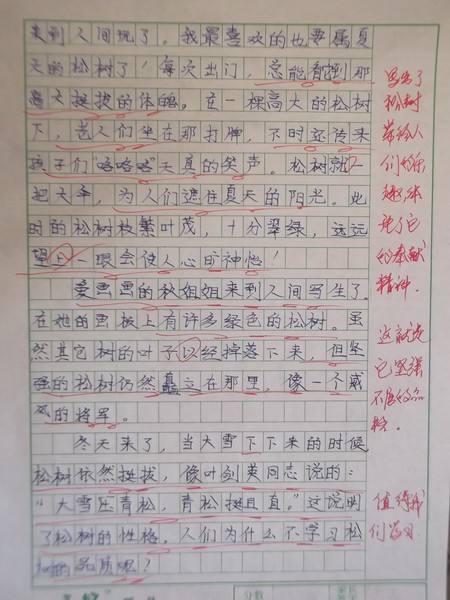 来到人间玩了。我最喜欢的也要属夏
天的松树了！每次出门，总能看到那
高大挺拔的体魄。在一棵高大的松树
下，老人们坐在那打牌，下时还传来
孩子们“咯咯咯”天真的笑声。松树就
把大伞，为人们遮住夏天的阳光。此
时的松树枝繁叶茂，十分翠绿，远远
望上一眼会使人心旷神怡！
爱画画的秋姐姐来到人间写生了。
在她的画板上有许多绿色的松树。虽
然其它树的叶子以经掉落下来，但坚
强的松树仍然矗立在那里，像一个威
风的将军。
冬天来了，当大雪下下来的时候，
松树依然挺拔，像叶剑英同志说的：
“大雪压青松，青松挺且直。”这说明
了松树的性格，人们为什么不学习松
树的品质呢？
写出了
松树
带给人
们的乐
趣体
现了它
的奉献
精神。
这就说
它坚强
不屈的品
格。
值得我
们学习
分数